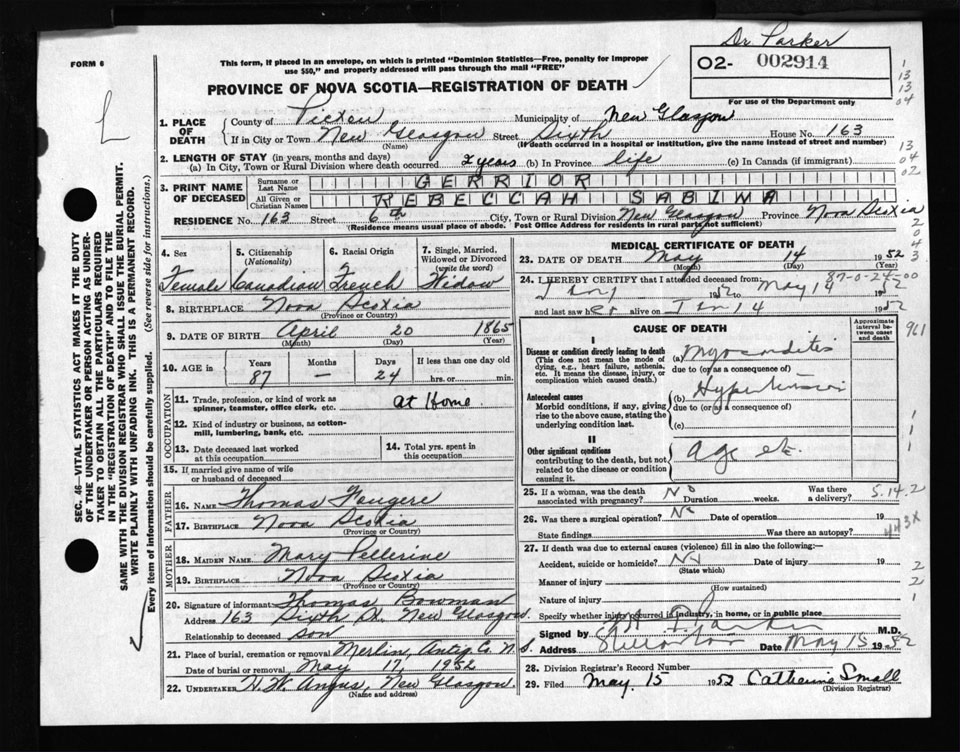 Dr. Parker
FORM 6
This form, if placed in an envelope, on which is printed "Dominion Statistics—Free, penalty for improper
use $50," and properly addressed will pass through the mail "FREE"
02- 002914
PROVINCE OF NOVA SCOTIA—REGISTRATION OF DEATH
For use of the Department only
1. PLACE OF DEATH
County of Pictou Municipality of New Glasgow
If in City or Town New Glasgow Street Sixth House No. 163
(Name) (If death occurred in a hospital or institution, give the name instead of street and number)
2. LENGTH OF STAY (in years, months and days)
(a) In City, Town or Rural Division where death occurred 2 years (b) In Province life (c) In Canada (if immigrant)
3. PRINT NAME OF DECEASED
Surname or Last Name GERRIOR
All Given or Christian Names REBECCAH SABINA
RESIDENCE No. 163 Street 6th City, Town or Rural Division New Glasgow Province Nova Scotia
(Residence means usual place of abode. Post Office Address for residents in rural parts not sufficient)
4. Sex 5. Citizenship (Nationality) 6. Racial Origin 7. Single, Married, Widowed or Divorced (write the word)
Female Canadian French Widow
8. BIRTHPLACE Nova Scotia
(Province or Country)
9. DATE OF BIRTH April 20 1865
(Month) (Day) (Year)
10. AGE in Years Months Days If less than one day old
87 — 24 hrs. or min.
OCCUPATION
11. Trade, profession, or kind of work as
spinner, teamster, office clerk, etc. At Home
12. Kind of industry or business, as cotton-
mill, lumbering, bank, etc.
13. Date deceased last worked
at this occupation
14. Total yrs. spent in
this occupation
15. If married give name of wife
or husband of deceased
FATHER
16. NAME Thomas Fougere
17. BIRTHPLACE Nova Scotia
(Province or Country)
MOTHER
18. MAIDEN NAME Mary Pellerine
19. BIRTHPLACE Nova Scotia
(Province or Country)
20. Signature of informant Thomas Bowman
Address 163 Sixth St. New Glasgow
Relationship to deceased son
21. Place of burial, cremation or removal Merlin, Antig. Co. N.S.
Date of burial or removal May 17, 1952
22. UNDERTAKER H.W. Angus, New Glasgow.
(Name and address)
MEDICAL CERTIFICATE OF DEATH
23. DATE OF DEATH May 14 1952
(Month) (Day) (Year)
87-0-24-00
24. I HEREBY CERTIFY that I attended deceased from:
1952 May 14 1952
and last saw her alive on 14 1952
CAUSE OF DEATH
Approximate interval between onset and death
I
Disease or condition directly leading to death
(This does not mean the mode of
dying, e.g., heart failure, asthenia,
etc. It means the disease, injury, or
complication which caused death.)
(a) Myocarditis
due to (or as a consequence of)
Antecedent causes
Morbid conditions, if any, giving
rise to the above cause, stating the
underlying condition last.
(b) Hypertension
due to (or as a consequence of)
(c)
II
Other significant conditions
contributing to the death, but not
related to the disease or condition
causing it.
Age etc.
25. If a woman, was the death
associated with pregnancy? No Duration weeks. Was there
a delivery? 5.14.2
26. Was there a surgical operation? No Date of operation 19
State findings Was there an autopsy? 443X
27. If death was due to external causes (violence) fill in also the following:—
Accident, suicide or homicide? No Date of injury 19
(State which)
Manner of injury
(How sustained)
Nature of injury
Specify whether injury occurred in industry, in home, or in public place
Signed by Parker M.D.
Address Stellarton Date May 15 1952
28. Division Registrar's Record Number
29. Filed May 15 1952 Catherine Small
(Division Registrar)
SEC. 46—VITAL STATISTICS ACT MAKES IT THE DUTY
OF THE UNDERTAKER OR PERSON ACTING AS UNDER-
TAKER TO OBTAIN ALL THE PARTICULARS REQUIRED
IN THE "REGISTRATION OF DEATH" AND TO FILE THE
SAME WITH THE DIVISION REGISTRAR WHO SHALL ISSUE THE BURIAL PERMIT.
WRITE PLAINLY WITH UNFADING INK. THIS IS A PERMANENT RECORD.
Every item of information should be carefully supplied. (See reverse side for instructions.)
1
13
13
04
13
04
02
2
0
4
3
961
1
1
1
2
2
1